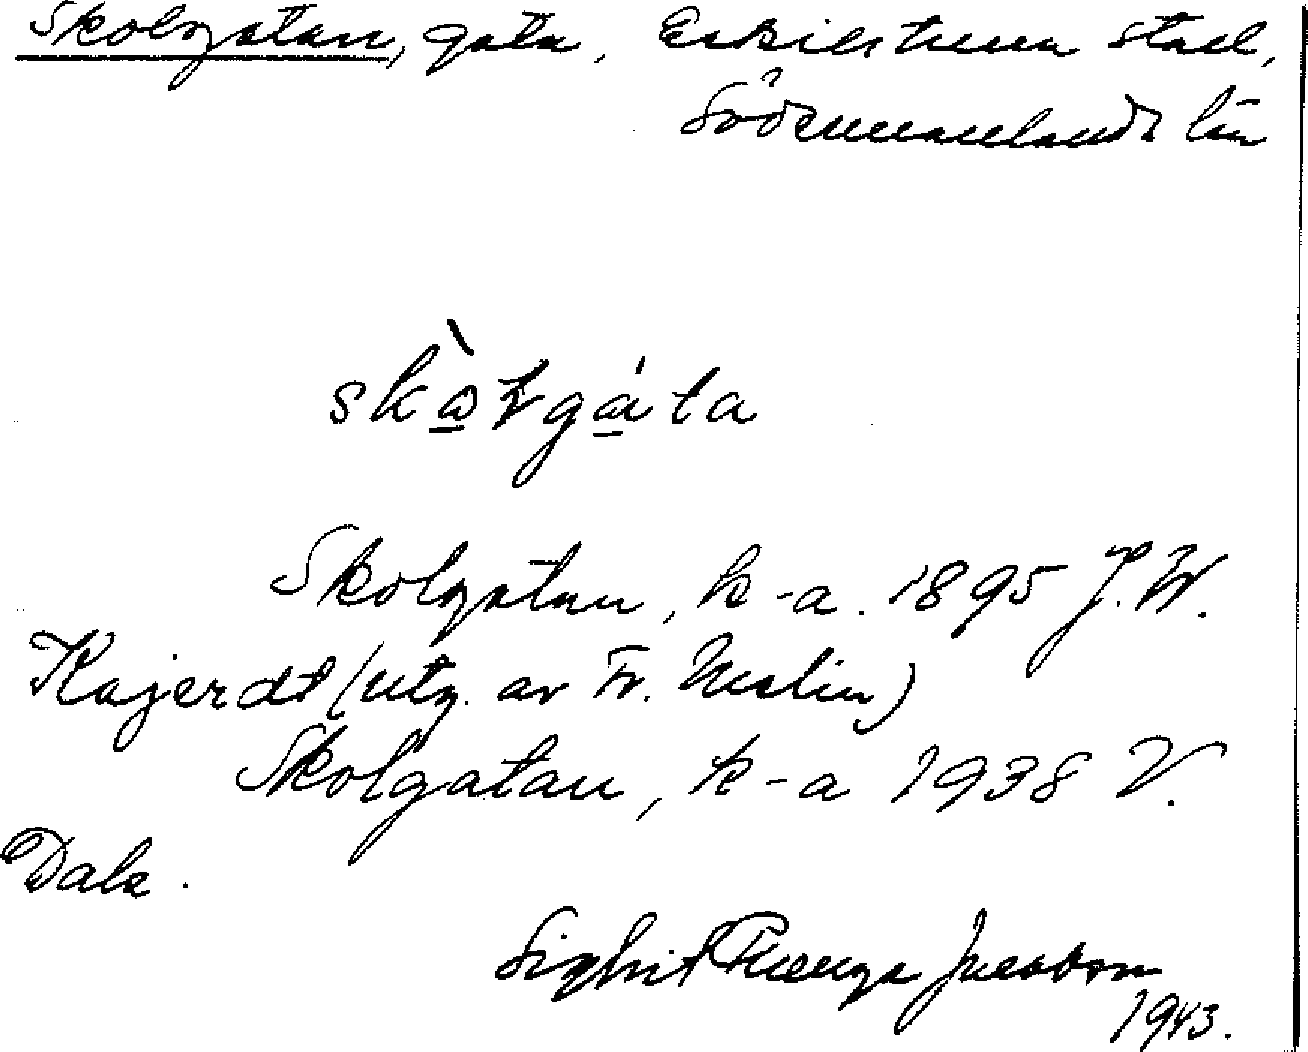 Skolgatan, gata, Eskilstuna stad,
Södermanlands län
skὼḷgáta
Skolgatan, k-a. 1895 J.W.
Kajerdt (utg. av Fr. Malin)
Skolgatan, k-a 1938 V.
Dala.
Sigbrit Plænge Jacobson
1943.